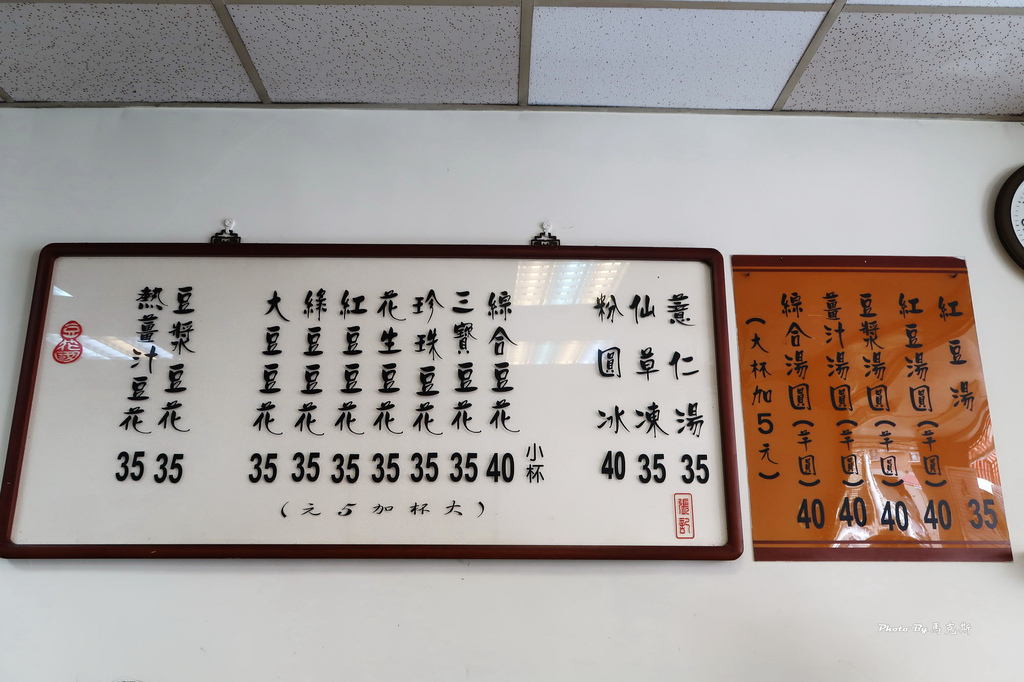 薏仁湯 35
仙草凍 35
粉圓冰 40
小杯
綜合豆花 40
三寶豆花 35
珍珠豆花 35
花生豆花 35
紅豆豆花 35
綠豆豆花 35
大豆豆花 35
豆漿豆花 35
熱薑汁豆花 35
(大杯加5元)
張記
豆花
紅豆湯 35
紅豆湯圓(芋圓) 40
豆漿湯圓(芋圓) 40
薑汁湯圓(芋圓) 40
綜合湯圓(芋圓) 40
(大杯加5元)
Photo By 馬克斯